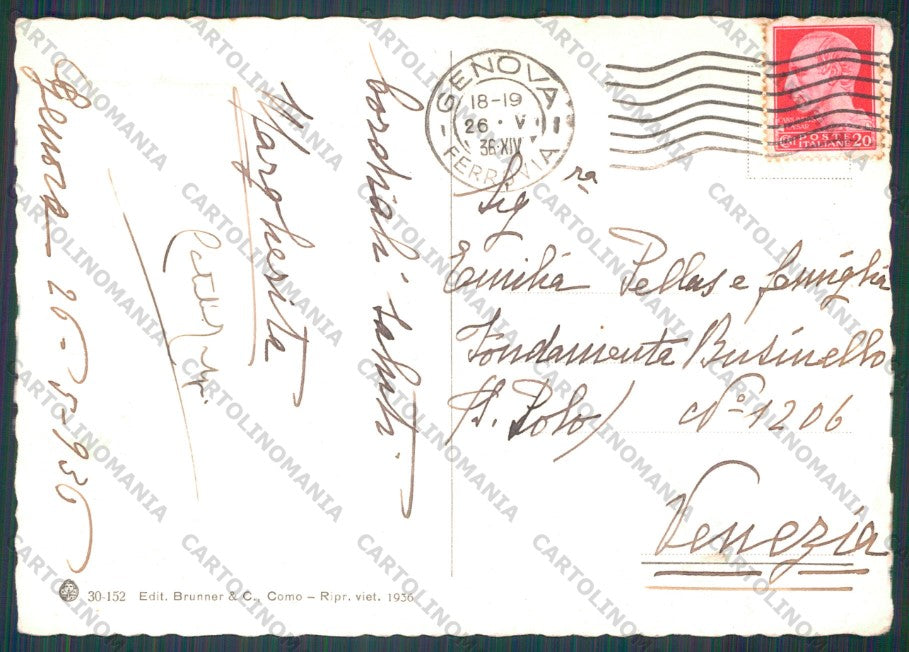 Genova 26-5-1936
Margherita
cordiali saluti.
GENOVA
18-19
26 · V
36·XIV
FERROVIA
POSTE
ITALIANE 20
Sig ra
Emilia Pellas e famiglia
Fondamenta Businello
(S. Polo) N° 1206
Venezia
30-152 Edit. Brunner & C., Como – Ripr. viet. 1936
CARTOLINOMANIA